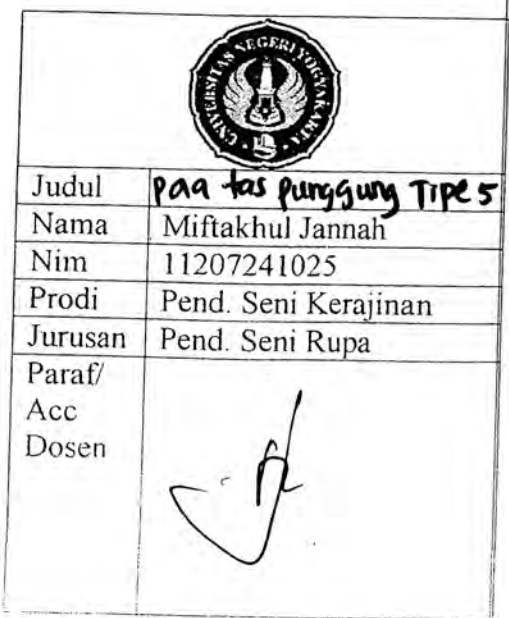 UNIVERSITAS NEGERI YOGYAKARTA
Judul paa tas punggung Tipe 5
Nama Miftakhul Jannah
Nim 11207241025
Prodi Pend. Seni Kerajinan
Jurusan Pend. Seni Rupa
Paraf/
Acc
Dosen